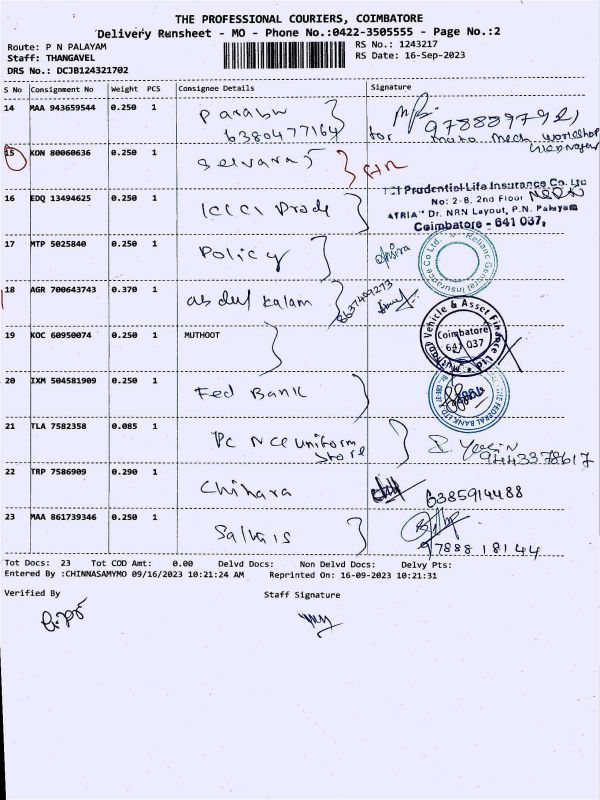 THE PROFESSIONAL COURIERS, COIMBATORE
Delivery Runsheet - MO - Phone No.:0422-3505555 - Page No.:2
Route: P N PALAYAM
RS No.: 1243217
Staff: THANGAVEL
RS Date: 16-Sep-2023
DRS No.: DCJB124321702
S No Consignment No Weight PCS Consignee Details Signature
14 MAA 943659544 0.250 1 Parabu
6380477164
for Moto Mech Workshop
15 KON 80060636 0.250 1 Selvaraj
16 EDQ 13494625 0.250 1 ICICI Prode
Prudential Life Insurance Co. Ltd
No: 2-8, 2nd Floor
ATRIA" Dr. NRN Layout, P.N. Palayam
Coimbatore - 641 037,
17 MTP 5025840 0.250 1 Policy
Reliance General Insurance Co Ltd.
18 AGR 700643743 0.370 1 abdul kalam
8637409273
19 KOC 60950074 0.250 1 MUTHOOT
Muthoot Vehicle & Asset Finance Ltd
Coimbatore
641 037
20 IXM 504581909 0.250 1 Fed Bank
FEDERAL BANK LTD
21 TLA 7582358 0.085 1 PC NCE uniform
Store
9443378617
22 TRP 7586909 0.290 1 Chihara
6385914488
23 MAA 861739346 0.250 1 Salvis
9788818144
Tot Docs: 23 Tot COD Amt: 0.00 Delvd Docs: Non Delvd Docs: Delvy Pts:
Entered By :CHINNASAMYMO 09/16/2023 10:21:24 AM Reprinted On: 16-09-2023 10:21:31
Verified By Staff Signature